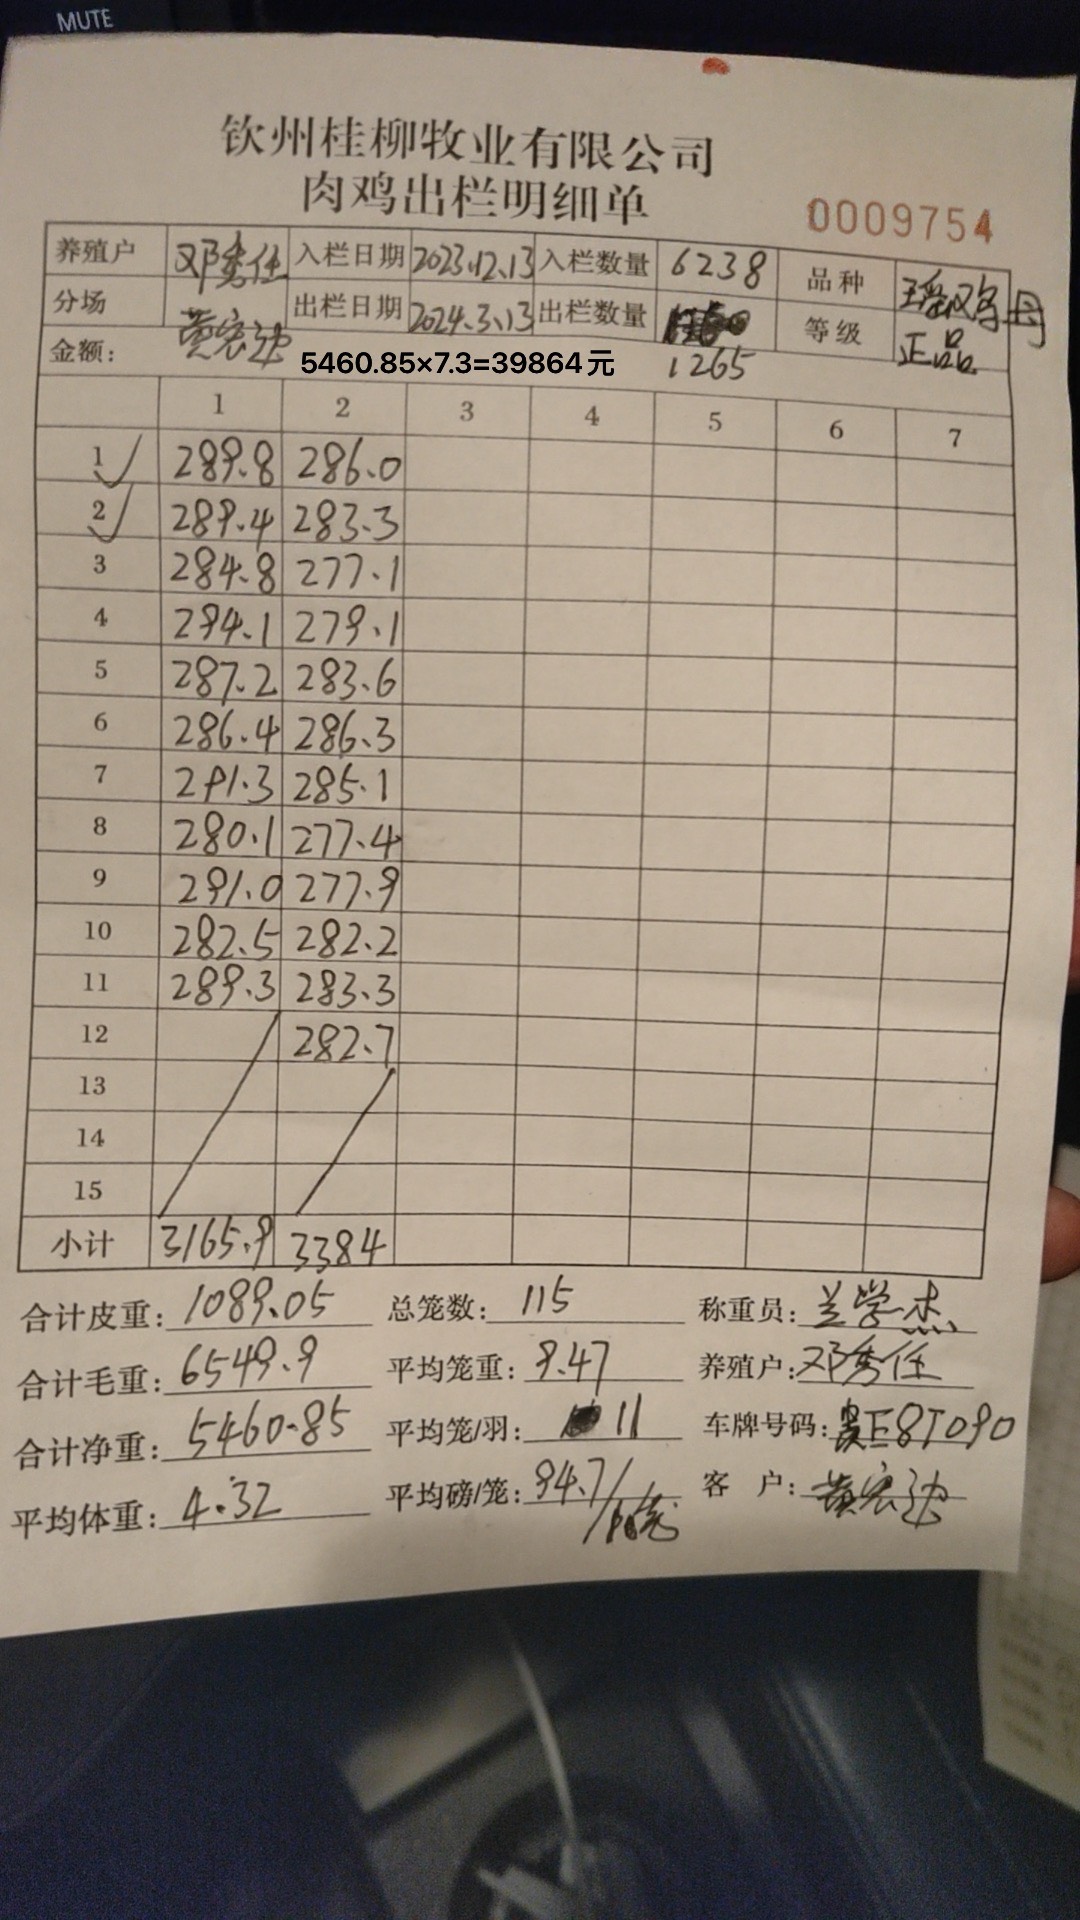 MUTE
钦州桂柳牧业有限公司
肉鸡出栏明细单
0009754
养殖户 邓秀任 入栏日期 2023.12.13 入栏数量 6238 品种 瑶鸡 母
分场 黄宏 出栏日期 2024.3.13 出栏数量 1265 等级 正品
金额: 5460.85×7.3=39864元
1 2 3 4 5 6 7
1 289.8 286.0
2 289.4 283.3
3 284.8 277.1
4 294.1 279.1
5 287.2 283.6
6 286.4 286.3
7 291.3 285.1
8 280.1 277.4
9 291.0 277.9
10 282.5 282.2
11 289.3 283.3
12 282.7
13
14
15
小计 3165.9 3384
合计皮重: 1089.05 总笼数: 115 称重员: 兰学杰
合计毛重: 6549.9 平均笼重: 9.47 养殖户: 邓秀任
合计净重: 5460.85 平均笼/羽: 11 车牌号码: 贵E8T090
平均体重: 4.32 平均磅/笼: 94.7/ 客 户: 黄宏